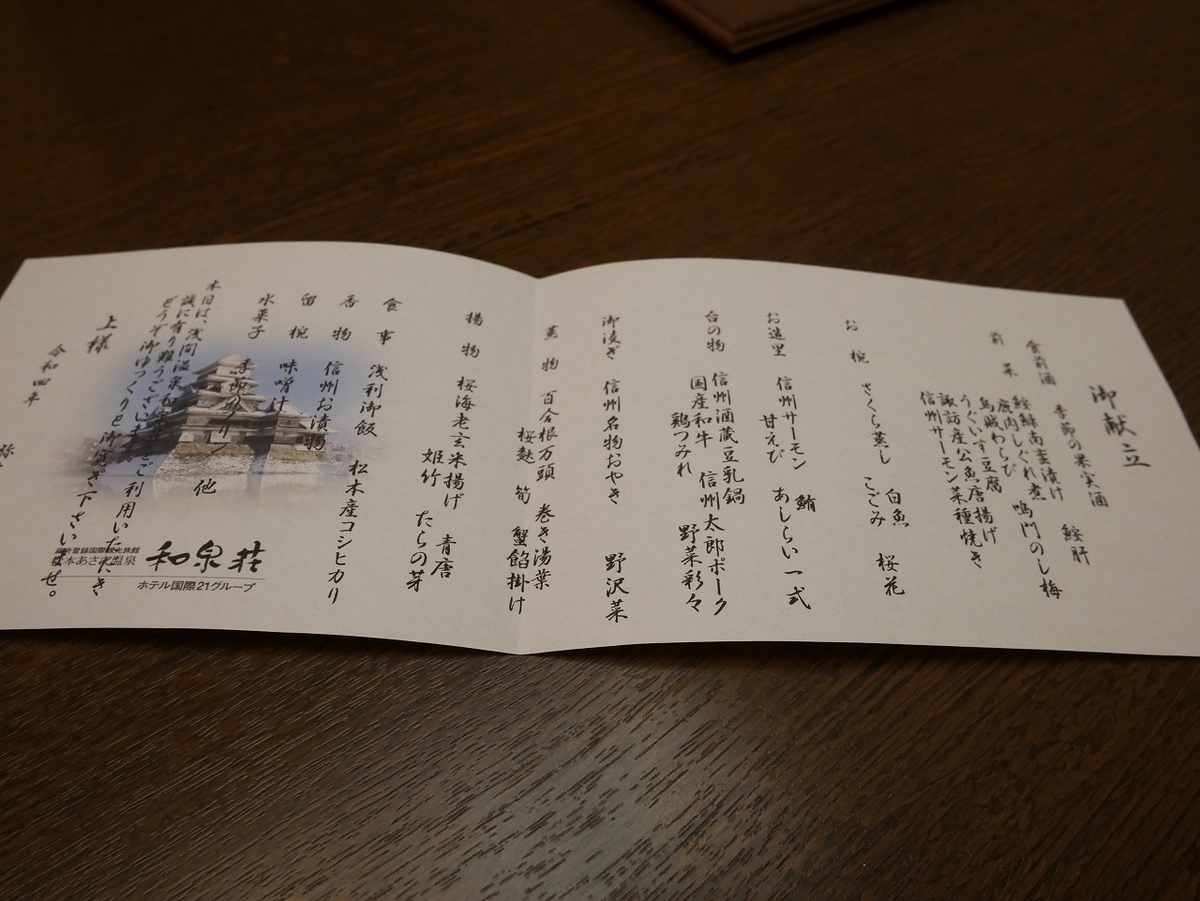 御献立
食前酒 季節の果実酒
前菜 鮟肝
鮟鱇南蛮漬け
鹿肉しぐれ煮 鳴門のし梅
鳥賊わらび
うぐいす豆腐
諏訪産公魚唐揚げ
信州サーモン菜種焼き
お椀 さくら蒸し 白魚 桜花
こごみ
お造里 信州サーモン 鮪
甘えび あしらい一式
台の物 信州酒蔵豆乳鍋
国産和牛 信州太郎ポーク
鶏つみれ 野菜彩々
御凌ぎ 信州名物おやき 野沢菜
蒸物 百合根万頭 巻き湯葉
桜麩 筍 蟹餡掛け
揚物 桜海老玄米揚げ 青唐
姫竹 たらの芽
食事 浅利御飯 松本産コシヒカリ
香物 信州お漬物
留椀 味噌汁
水菓子 季節のフルーツ 他
本日は、浅間温泉和泉荘をご利用いただき
誠に有り難うございます。
どうぞ御ゆっくりと御寛ぎ下さいませ。
上様
令和四年
和泉荘
ホテル国際21グループ